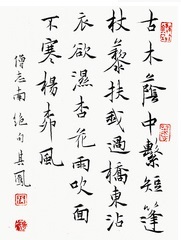 古木蔭中繫短篷
杖藜扶我過橋東沾
衣欲濕杏花雨吹面
不寒楊柳風
僧志南絕句其鳳